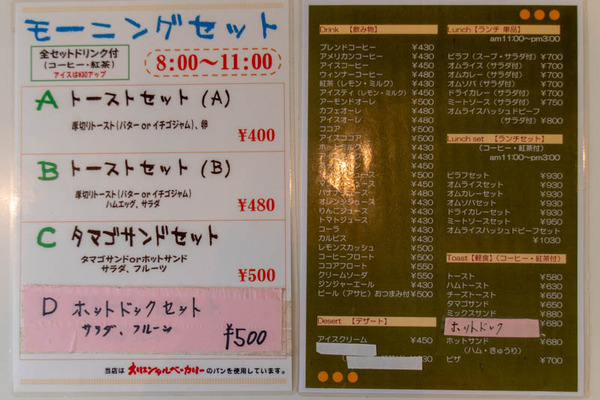 モーニングセット
全セットドリンク付
(コーヒー・紅茶)
アイスは¥30アップ
8:00〜11:00
A トーストセット (A)
厚切りトースト(バター or イチゴジャム)、卵
¥400
B トーストセット (B)
厚切りトースト(バター or イチゴジャム)
ハムエッグ、サラダ
¥480
C タマゴサンドセット
タマゴサンドorホットサンド
サラダ、フルーツ
¥500
D ホットドックセット
サラダ、フルーツ
¥500
当店は オリエンタルベーカリー のパンを使用しています。
Drink 【飲み物】
ブレンドコーヒー ¥430
アメリカンコーヒー ¥430
アイスコーヒー ¥450
ウィンナーコーヒー ¥480
紅茶 (レモン・ミルク) ¥430
アイスティ (レモン・ミルク) ¥450
アーモンドオーレ ¥500
カフェオーレ ¥480
アイスオーレ ¥480
ココア ¥500
アイスココア ¥500
ホットミルク
オレンジジュース
りんごジュース ¥430
トマトジュース ¥430
コーラ ¥430
カルピス ¥430
レモンスカッシュ ¥500
コーヒーフロート ¥500
ココアフロート ¥550
クリームソーダ ¥550
ジンジャーエール ¥430
ビール (アサヒ) おつまみ付 ¥500
Desert 【デザート】
アイスクリーム ¥450
Lunch 【ランチ 単品】
am11:00〜pm3:00
ピラフ (スープ・サラダ付) ¥700
オムライス (サラダ付) ¥700
オムカレー (サラダ付) ¥700
オムソバ (サラダ付) ¥700
ドライカレー (サラダ付) ¥700
ミートソース (サラダ付) ¥750
オムライスハッシュドビーフ
(サラダ付) ¥800
Lunch set 【ランチセット】
(コーヒー・紅茶付)
am11:00〜pm3:00
ピラフセット ¥930
オムライスセット ¥930
オムカレーセット ¥930
オムソバセット ¥930
ドライカレーセット ¥930
ミートソースセット ¥950
オムライスハッシュドビーフセット
¥1030
Toast 【軽食】 (コーヒー・紅茶付)
トースト ¥580
ハムトースト ¥630
チーズトースト ¥650
タマゴサンド ¥650
ミックスサンド ¥880
ホットドック ¥680
ホットサンド ¥680
(ハム・きゅうり)
ピザ ¥700